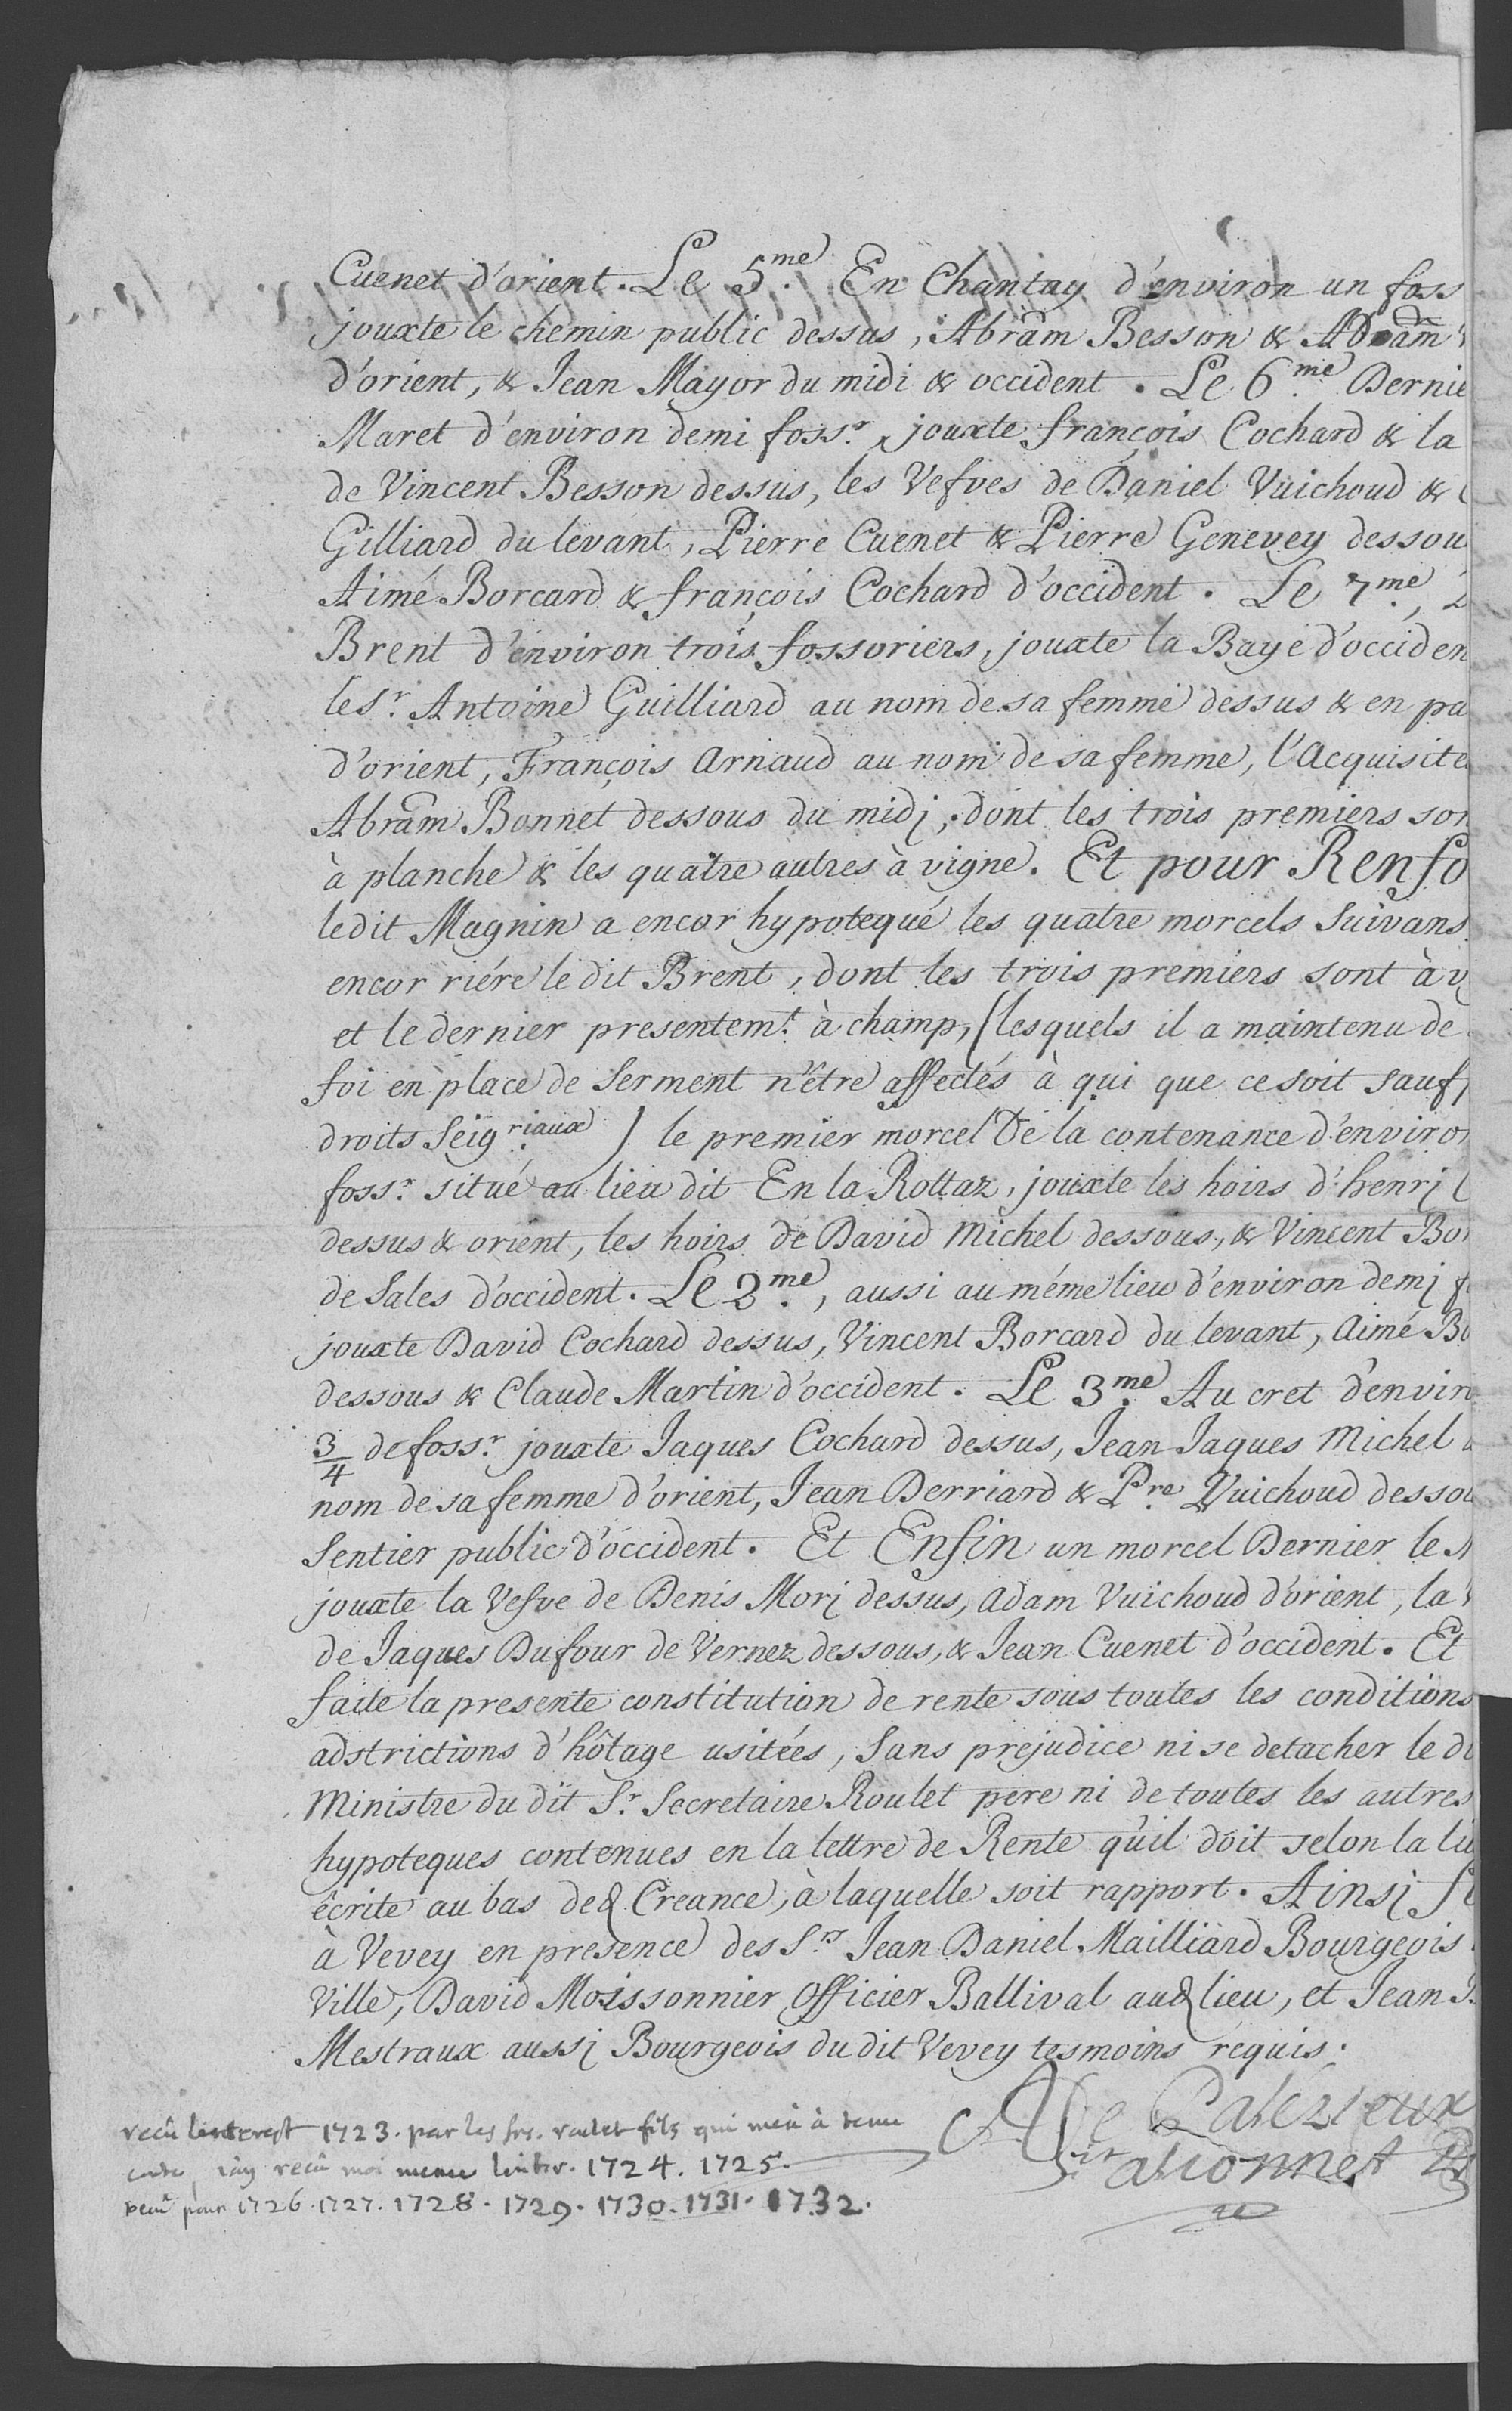 Cuenet d'orient. Le 5.me En Chantay d'environ un foss
jouxte le chemin public dessus, Abram Besson & Adam
d'orient, & Jean Mayor du midi & occident. Le 6.me Dernie
Maret d'environ demi foss.r, jouxte françois Cochard & la
de Vincent Besson dessus, les Vefves de Daniel Vuichoud &
Gilliard du levant, Pierre Cuenet & Pierre Genevey dessou
Aimé Borcard & françois Cochard d'occident. Le 7.me,
Brent d'environ trois fossoriers, jouxte la Baye d'occiden
le S.r Antoine Guilliard au nom de sa femme dessus & en pa
d'orient, François Arnaud au nom de sa femme, l'Acquisite
Abram Bonnet dessous du midj, dont les trois premiers son
à planche & les quatre autres à vigne. Et pour Renfo
ledit Magnin a encor hypotequé les quatre morcels Suivans
encor riére le dit Brent, dont les trois premiers sont à v
et le dernier presentem.t à champ, (lesquels il a maintenu de
foi en place de Serment n'être affectés à qui que ce soit sauf
droits Seig.riaux) le premier morcel De la contenance d'enviro
foss.r situé au lieu dit En la Rottaz, jouxte les hoirs d'henrj
dessus & orient, les hoirs de David Michel dessous, & Vincent Bo
de Sales d'occident. Le 2.me, aussi au méme lieu d'environ demj f
jouxte David Cochard dessus, Vincent Borcard du levant, Aimé Bo
dessous & Claude Martin d'occident. Le 3.me Au cret d'enviro
3/4 de foss.r jouxte Jaques Cochard dessus, Jean Jaques Michel
nom de sa femme d'orient, Jean Derriard & P.re Vuichoud dessou
Sentier public d'occident. Et Enfin un morcel Dernier le
jouxte la Vefve de Denis Morj dessus, Adam Vuichoud d'orient, la
de Jaques Dufour de Vernez dessous, & Jean Cuenet d'occident. Et
faite la presente constitution de rente sous toutes les conditions
adstrictions d'hôtage usitées, Sans prejudice ni se detacher le di
Ministre du dit S.r Secretaire Roulet pere ni de toutes les autres
hypoteques contenues en la lettre de Rente qu'il doit selon la li
êcrite au bas de Creance, à laquelle soit rapport. Ainsj f
à Vevey en presence des S.rs Jean Daniel Mailliard Bourgeois
Ville, David Moissonnier Officier Ballival aud lieu, et Jean
Mestraux aussj Bourgeois du dit Vevey tesmoins requis.
recû linterest 1723. par les frs. roulet fils qui men à tenu
conte, jay recû moi meme linter. 1724. 1725.
recû pour 1726. 1727. 1728. 1729. 1730. 1731. 1732.